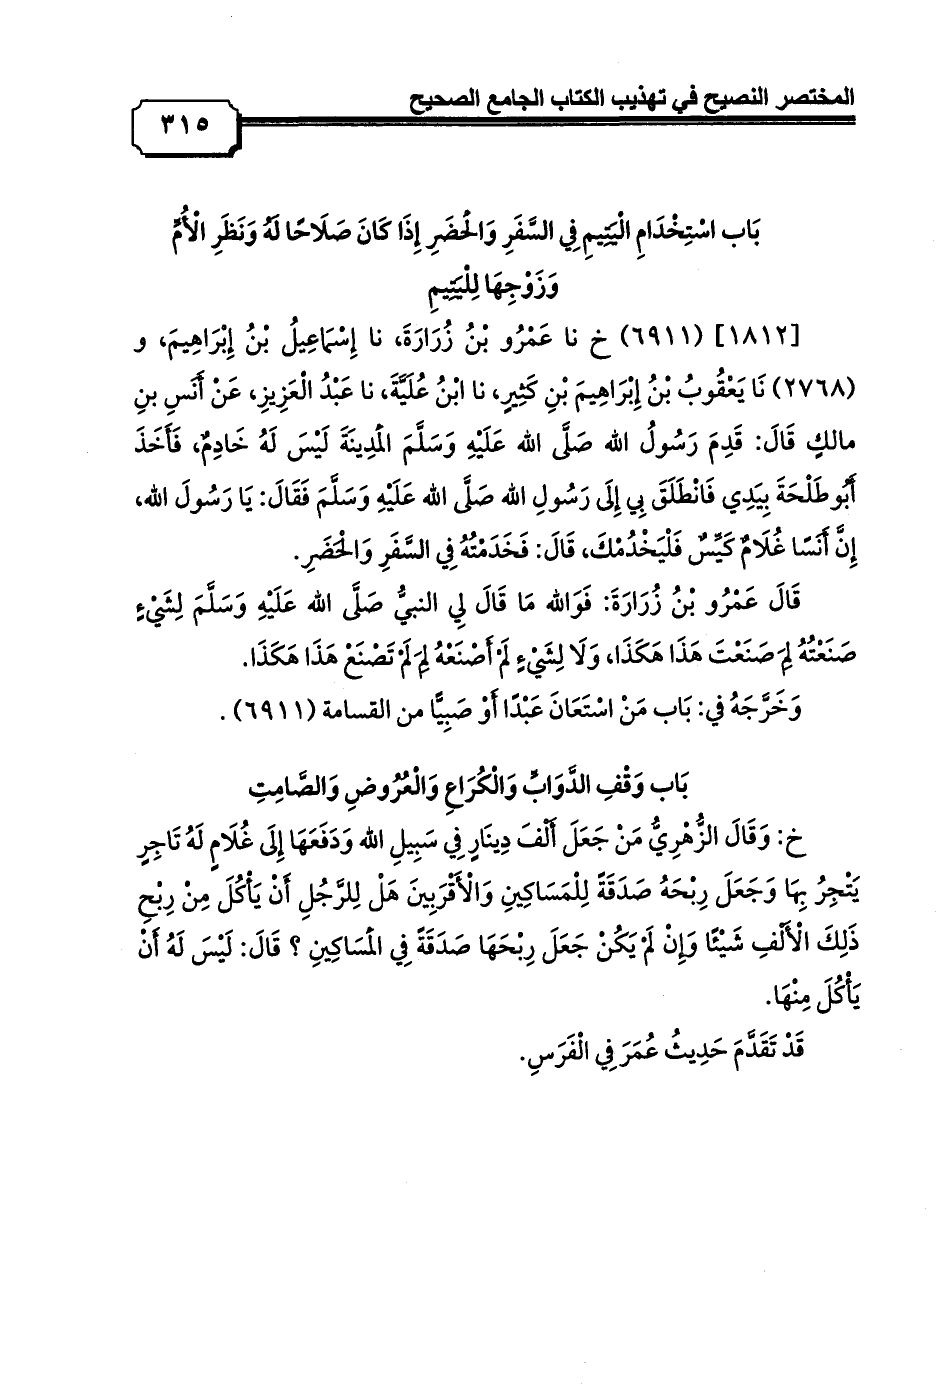 المختصر النصيح في تهذيب الكتاب الجامع الصحيح
٣١٥
بَاب اسْتِخْدَامِ الْيَتِيمِ فِي السَّفَرِ وَالْحَضَرِ إِذَا كَانَ صَلَاحًا لَهُ وَنَظَرِ الْأُمِّ
وَزَوْجِهَا لِلْيَتِيمِ
[١٨١٢] (٦٩١١) خ نا عَمْرُو بْنُ زُرَارَةَ، نا إِسْمَاعِيلُ بْنُ إِبْرَاهِيمَ، و
(٢٧٦٨) نَا يَعْقُوبُ بْنُ إِبْرَاهِيمَ بْنِ كَثِيرٍ، نا ابْنُ عُلَيَّةَ، نا عَبْدُ الْعَزِيزِ، عَنْ أَنَسِ بنِ
مالكٍ قَالَ: قَدِمَ رَسُولُ الله صَلَّى الله عَلَيْهِ وَسَلَّمَ الْمَدِينَةَ لَيْسَ لَهُ خَادِمٌ، فَأَخَذَ
أَبُو طَلْحَةَ بِيَدِي فَانْطَلَقَ بِي إِلَى رَسُولِ الله صَلَّى الله عَلَيْهِ وَسَلَّمَ فَقَالَ: يَا رَسُولَ الله،
إِنَّ أَنَسًا غُلَامٌ كَيِّسٌ فَلْيَخْدُمْكَ، قَالَ: فَخَدَمْتُهُ فِي السَّفَرِ وَالْحَضَرِ.
قَالَ عَمْرُو بْنُ زُرَارَةَ: فَوَالله مَا قَالَ لِي النبيُّ صَلَّى الله عَلَيْهِ وَسَلَّمَ لِشَيْءٍ
صَنَعْتُهُ لِمَ صَنَعْتَ هَذَا هَكَذَا، وَلَا لِشَيْءٍ لَمْ أَصْنَعْهُ لِمَ لَمْ تَصْنَعْ هَذَا هَكَذَا.
وَخَرَّجَهُ في: بَاب مَنْ اسْتَعَانَ عَبْدًا أَوْ صَبِيًّا من القسامة (٦٩١١) .
بَاب وَقْفِ الدَّوَابِّ وَالْكُرَاعِ وَالْعُرُوضِ وَالصَّامِتِ
خ: وَقَالَ الزُّهْرِيُّ مَنْ جَعَلَ أَلْفَ دِينَارٍ فِي سَبِيلِ الله وَدَفَعَهَا إِلَى غُلَامٍ لَهُ تَاجِرٍ
يَتْجِرُ بِهَا وَجَعَلَ رِبْحَهُ صَدَقَةً لِلْمَسَاكِينِ وَالْأَقْرَبِينَ هَلْ لِلرَّجُلِ أَنْ يَأْكُلَ مِنْ رِبْحِ
ذَلِكَ الْأَلْفِ شَيْئًا وَإِنْ لَمْ يَكُنْ جَعَلَ رِبْحَهَا صَدَقَةً فِي الْمَسَاكِينِ ؟ قَالَ: لَيْسَ لَهُ أَنْ
يَأْكُلَ مِنْهَا.
قَدْ تَقَدَّمَ حَدِيثُ عُمَرَ فِي الْفَرَسِ.